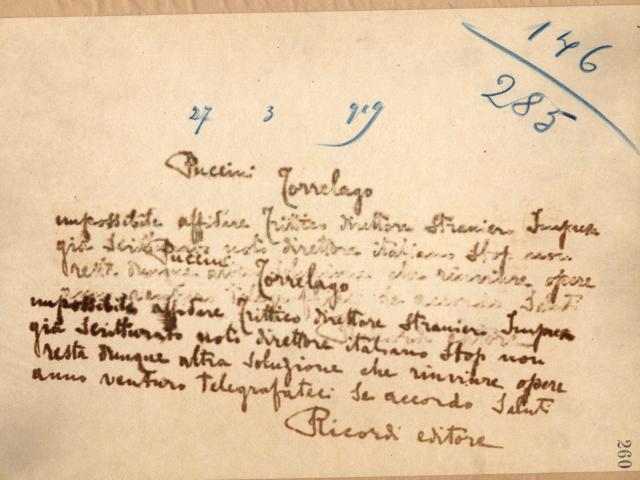 146
285
27 3 919
Puccini Torrelago
impossibile affidare Trittico direttore straniero Impresa
già scritturato noto direttore italiano Stop non
resta dunque che rinviare opere
Saluti
Puccini Torrelago
impossibile affidare Trittico direttore straniero Impresa
già scritturato noto direttore italiano Stop non
resta dunque altra soluzione che rinviare opere
anno venturo telegrafateci se accordo Saluti
Ricordi editore
260